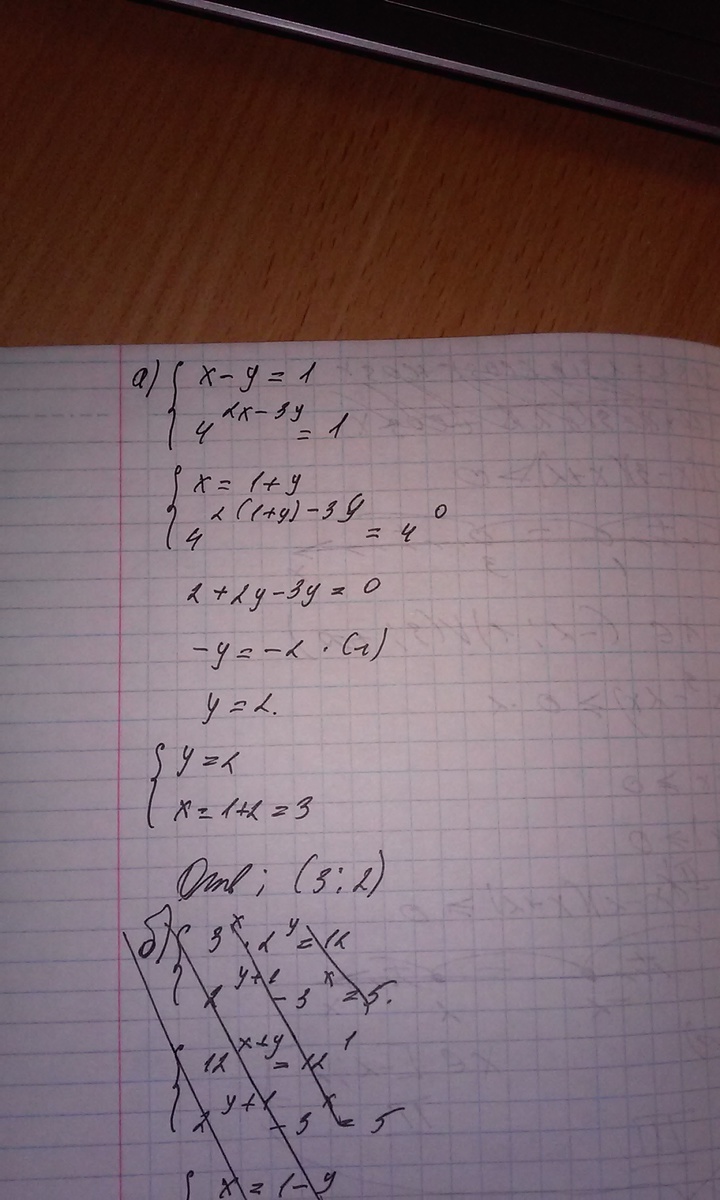 а) { x - y = 1
4^{2x-3y} = 1
{ x = 1+y
4^{2(1+y)-3y} = 4^0
2+2y-3y = 0
-y = -2 · (1)
y = 2.
{ y = 2
x = 1+2 = 3
Отв; (3;2)
б) { 3^x · 2^y = 12
2^{y+1} - 3^x = 5.
{ 12^{x+y} = 12^1
2^{y+1} - 3^x = 5
{ x = 1-y